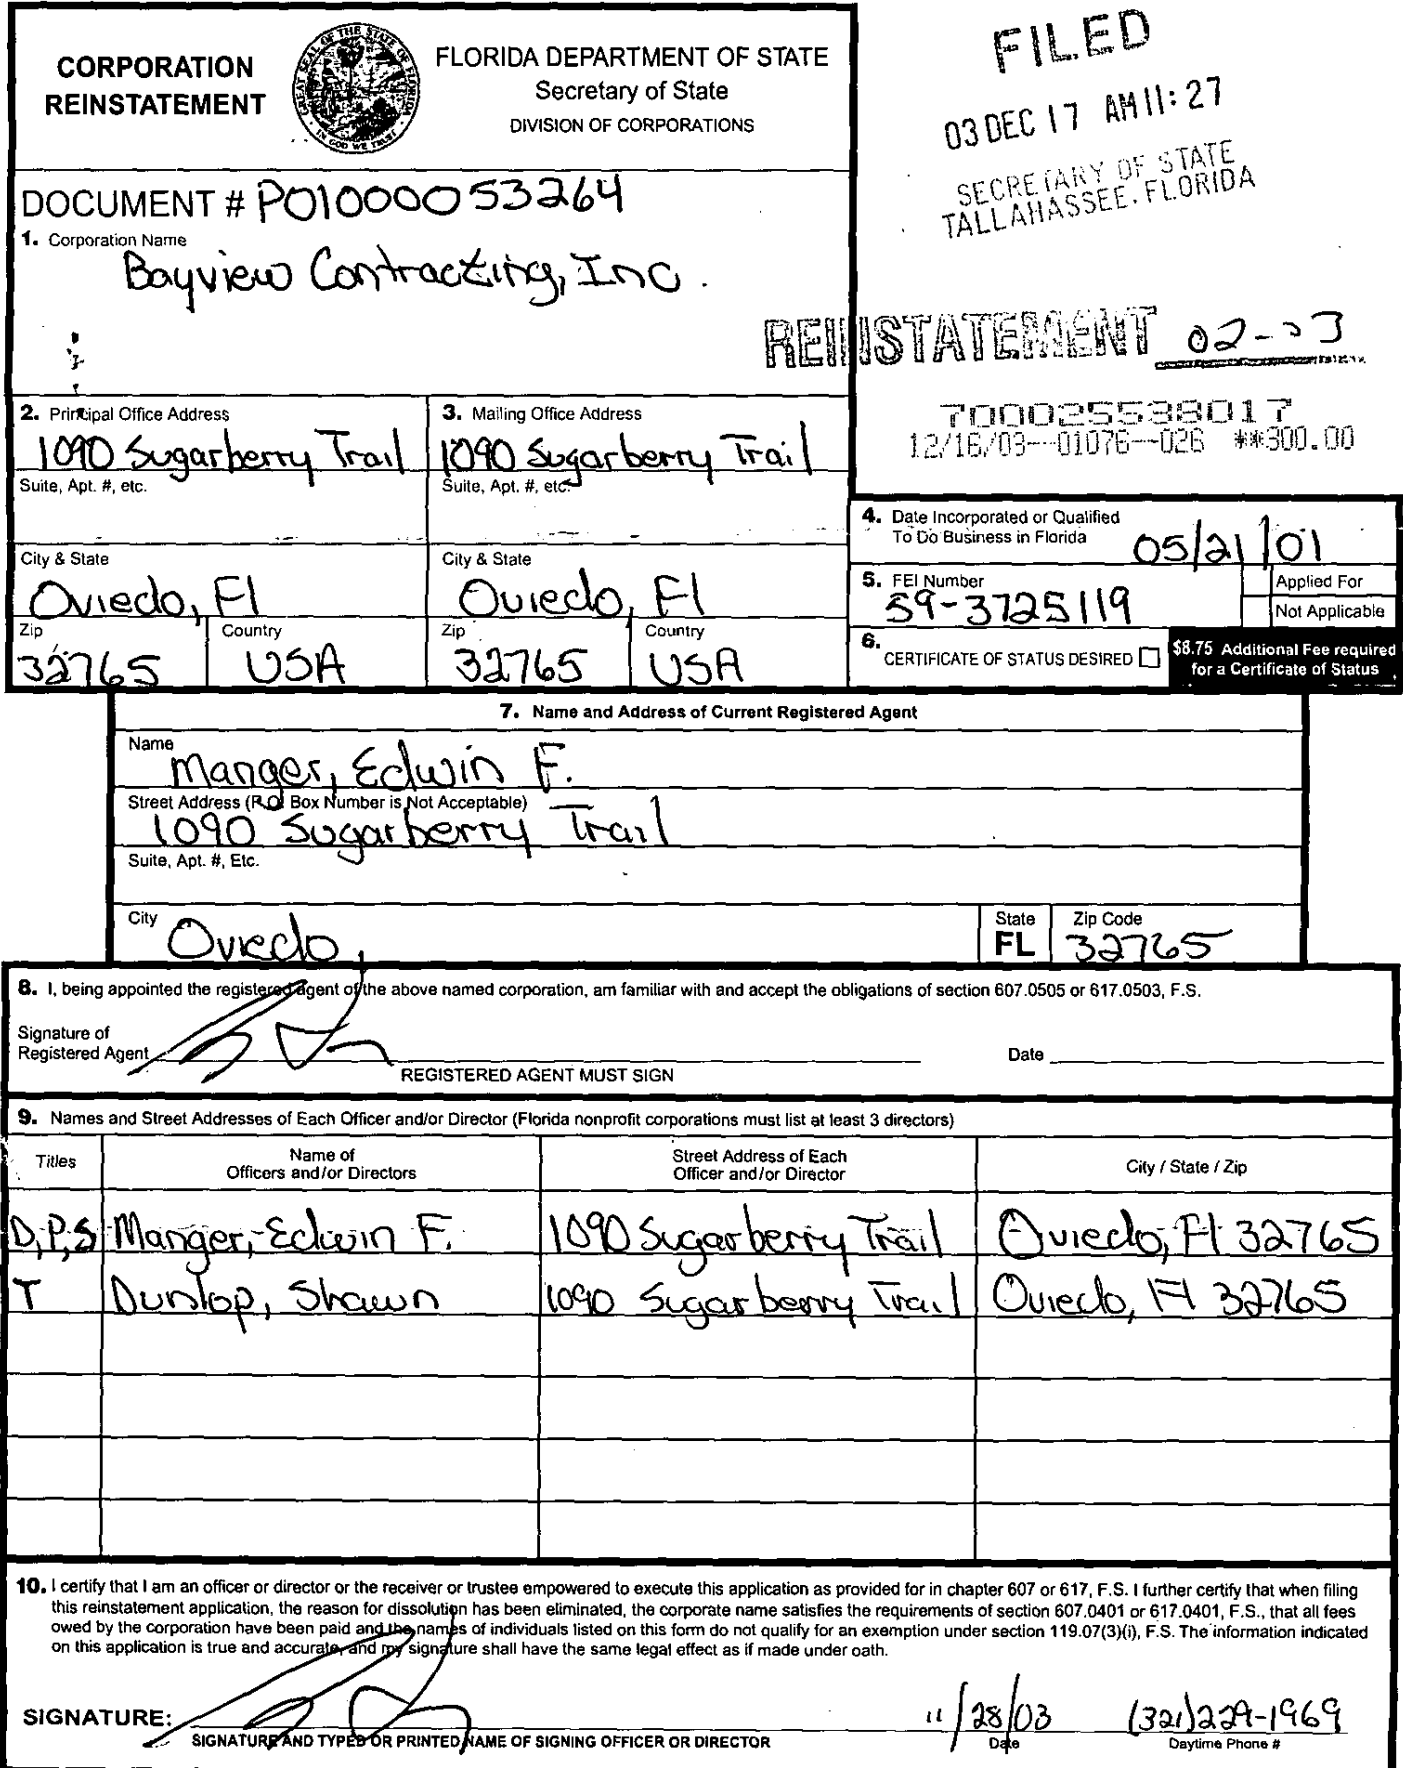 CORPORATION
REINSTATEMENT
GREAT SEAL OF THE STATE OF FLORIDA
IN GOD WE TRUST
FLORIDA DEPARTMENT OF STATE
Secretary of State
DIVISION OF CORPORATIONS
FILED
03 DEC 17 AM 11: 27
SECRETARY OF STATE
TALLAHASSEE, FLORIDA
DOCUMENT # P01000053264
1. Corporation Name
Bayview Contracting, Inc.
REINSTATEMENT 02-03
700025538017
12/16/03--01076--026 **300.00
2. Principal Office Address
1090 Sugarberry Trail
Suite, Apt. #, etc.
City & State
Oviedo, Fl
Zip
32765
Country
USA
3. Mailing Office Address
1090 Sugarberry Trail
Suite, Apt. #, etc.
City & State
Oviedo, Fl
Zip
32765
Country
USA
4. Date Incorporated or Qualified
To Do Business in Florida
05/21/01
5. FEI Number
59-3725119
Applied For
Not Applicable
6. CERTIFICATE OF STATUS DESIRED
$8.75 Additional Fee required
for a Certificate of Status
7. Name and Address of Current Registered Agent
Name
Manger, Edwin F.
Street Address (P.O. Box Number is Not Acceptable)
1090 Sugarberry Trail
Suite, Apt. #, Etc.
City
Oviedo,
State
FL
Zip Code
32765
8. I, being appointed the registered agent of the above named corporation, am familiar with and accept the obligations of section 607.0505 or 617.0503, F.S.
Signature of
Registered Agent
REGISTERED AGENT MUST SIGN
Date
9. Names and Street Addresses of Each Officer and/or Director (Florida nonprofit corporations must list at least 3 directors)
Titles
Name of
Officers and/or Directors
Street Address of Each
Officer and/or Director
City / State / Zip
D,P,S Manger, Edwin F. 1090 Sugarberry Trail Oviedo, Fl 32765
T Dunlop, Shawn 1090 Sugarberry Trail Oviedo, Fl 32765
10. I certify that I am an officer or director or the receiver or trustee empowered to execute this application as provided for in chapter 607 or 617, F.S. I further certify that when filing
this reinstatement application, the reason for dissolution has been eliminated, the corporate name satisfies the requirements of section 607.0401 or 617.0401, F.S., that all fees
owed by the corporation have been paid and the names of individuals listed on this form do not qualify for an exemption under section 119.07(3)(i), F.S. The information indicated
on this application is true and accurate, and my signature shall have the same legal effect as if made under oath.
SIGNATURE:
SIGNATURE AND TYPED OR PRINTED NAME OF SIGNING OFFICER OR DIRECTOR
11/28/03
Date
(321)229-1969
Daytime Phone #